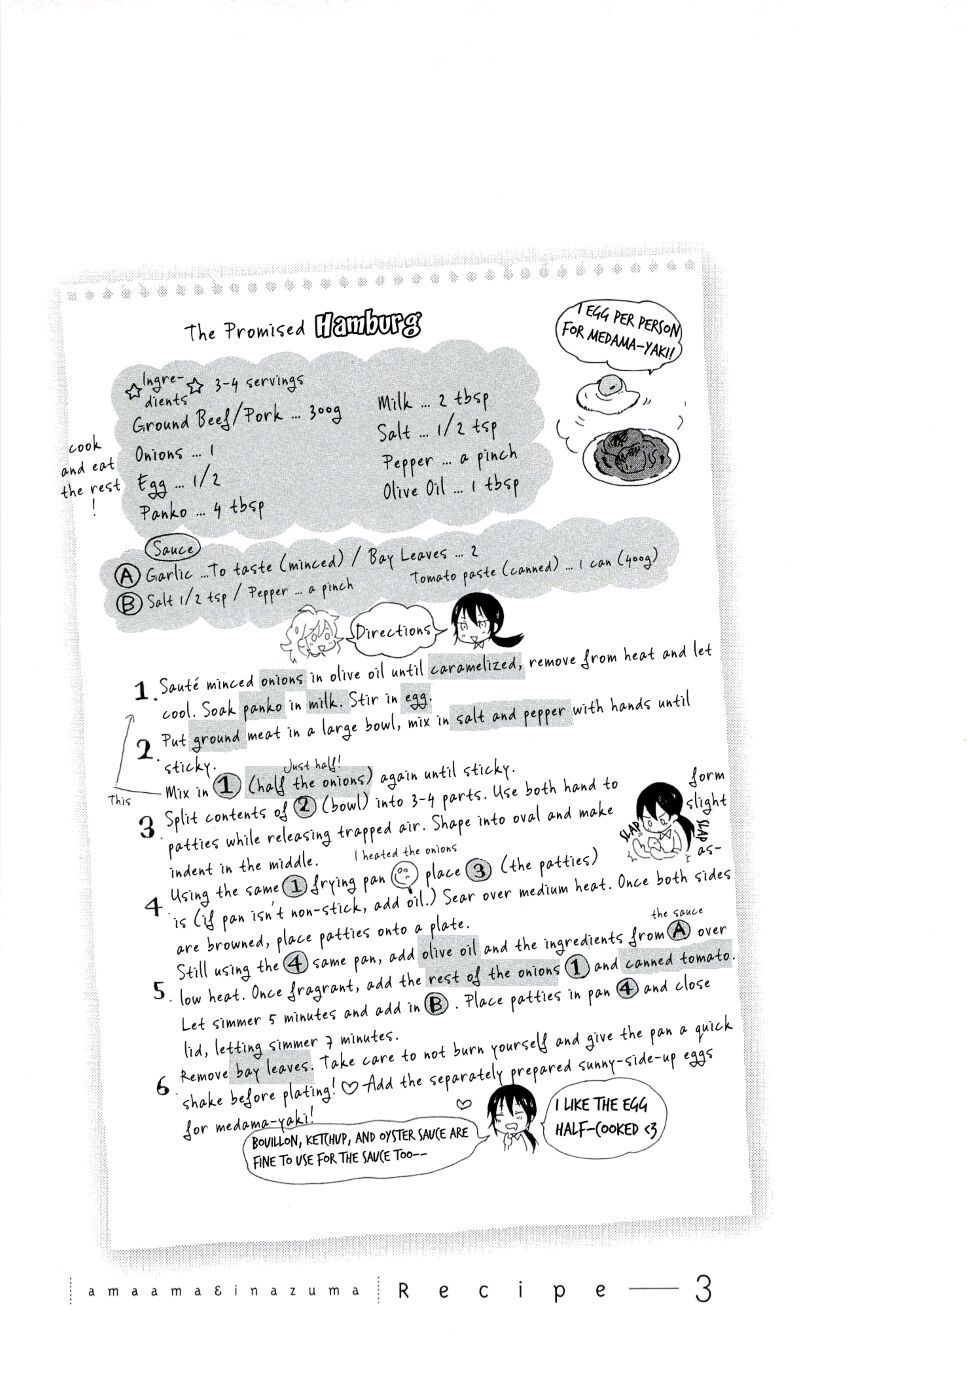 The Promised Hamburg
I EGG PER PERSON
FOR MEDAMA-YAKI!
Ingre-
dients
3-4 servings
Ground Beef/Pork ... 300g
Onions ... 1
Egg ... 1/2
Panko ... 4 tbsp
Milk ... 2 tbsp
Salt ... 1/2 tsp
Pepper ... a pinch
Olive Oil ... 1 tbsp
cook
and eat
the rest
!
Sauce
A Garlic ...To taste (minced) / Bay Leaves ... 2
B Salt 1/2 tsp / Pepper ... a pinch
Tomato paste (canned) ... 1 can (400g)
Directions
1. Sauté minced onions in olive oil until caramelized, remove from heat and let
cool. Soak panko in milk. Stir in egg.
2. Put ground meat in a large bowl, mix in salt and pepper with hands until
sticky.
Just half!
This
Mix in 1 (half the onions) again until sticky.
3. Split contents of 2 (bowl) into 3-4 parts. Use both hand to form
patties while releasing trapped air. Shape into oval and make slight
indent in the middle.
SLAP
SLAP
as-
I heated the onions
4 Using the same 1 frying pan place 3 (the patties)
is (if pan isn't non-stick, add oil.) Sear over medium heat. Once both sides
are browned, place patties onto a plate.
the sauce
5. Still using the 4 same pan, add olive oil and the ingredients from A over
low heat. Once fragrant, add the rest of the onions 1 and canned tomato.
Let simmer 5 minutes and add in B. Place patties in pan 4 and close
lid, letting simmer 7 minutes.
6. Remove bay leaves. Take care to not burn yourself and give the pan a quick
shake before plating! ♡ Add the separately prepared sunny-side-up eggs
for medama-yaki!
BOUILLON, KETCHUP, AND OYSTER SAUCE ARE
FINE TO USE FOR THE SAUCE TOO--
I LIKE THE EGG
HALF-COOKED <3
amaama&inazuma Recipe — 3